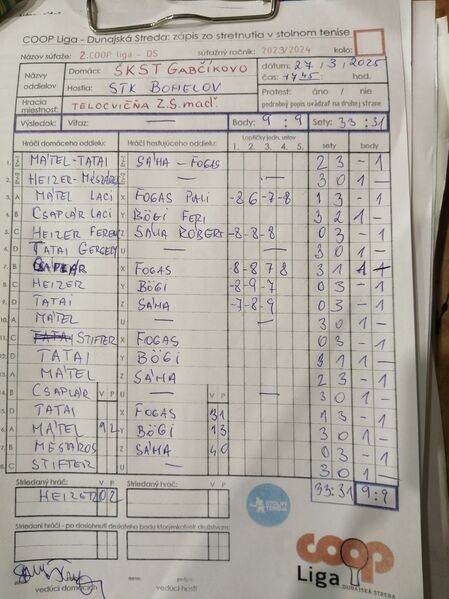 COOP Liga - Dunajská Streda: zápis zo stretnutia v stolnom tenise
Názov súťaže: 2.COOP liga - DS súťažný ročník: 2023/2024 kolo:
Názvy oddielov Domáci: ŠKST GABČÍKOVO dátum: 27/3/2025
Hostia: STK BOHELOV čas: 1745 hod.
Hracia miestnosť: TELOCVIČŇA Z.S. maď. Protest: áno / nie
podrobný popis uvádzať na druhej strane
Výsledok: Víťaz: — Body: 9 : 9 Sety: 33 : 31
Hráči domáceho oddielu: Hráči hosťujúceho oddielu: Loptičky jedn. setov 1. 2. 3. 4. 5. sety body
1. MÁTEL-TATAI SÁHA - FOGAS 2 3 - 1
2. HEIZER-MÉSZÁROS — — 3 0 1 -
3. A MÁTEL LACI X FOGAS PALI -8 6 -7 -8 1 3 - 1
4. B CSAPLÁR LACI Y BÖGI FERI 3 2 1 -
5. C HEIZER FERENZ Z SÁHA RÓBERT -8 -8 -8 0 3 - 1
6. D TATAI GERGELY U — — 3 0 1 -
7. B CSAPLÁR X FOGAS 8 -8 7 8 3 1 1 -
8. C HEIZER Y BÖGI -8 -9 -7 0 3 - 1
9. D TATAI Z SÁHA -7 -8 -9 0 3 - 1
10. A MÁTEL U — — 3 0 1 -
11. C TATAI STIFTER X FOGAS 0 3 - 1
12. D TATAI Y BÖGI 3 1 1 -
13. A MÁTEL Z SÁHA 2 3 - 1
14. B CSAPLÁR V P U — V P 3 0 1 -
15. D TATAI X FOGAS 3 1 1 3 - 1
16. A MÁTEL 9 2 Y BÖGI 1 3 3 0 1 -
17. B MESÁROS Z SÁHA 4 0 0 3 - 1
18. C STIFTER U — 3 0 1 -
Striedaný hráč: V P Striedaný hráč: V P 33:31 9:9
HEIZER 0 2
Striedaní hráči - po dosiahnutí desiateho bodu ktorýmkoľvek družstvom:
STOLNÝ TENIS
vedúci domácich
vedúci hostí
coop
Liga
DUNAJSKÁ STREDA